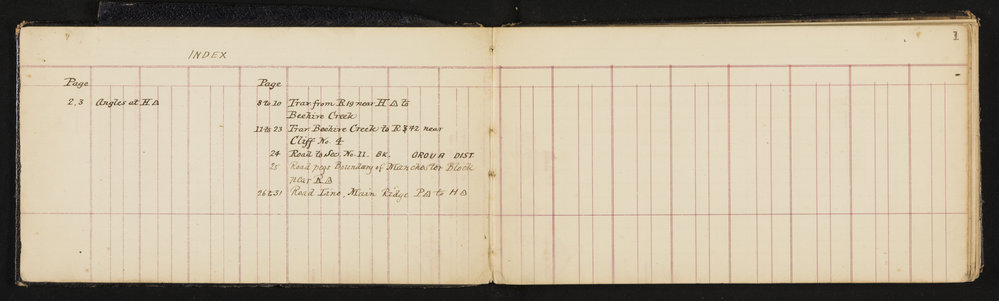 INDEX
1
Page
2,3 Angles at H △
Page
8 to 10 Trav. from R 19 near H △ to
Beehive Creek
11 to 23 Trav. Beehive Creek to R § 42 near
Cliff No. 4
24 Road to Sec. No. 11. BK. OROUA DIST.
25 Road pegs Boundary of Manchester Block
near K △
26 to 31 Road Line, Main Ridge P △ to H △